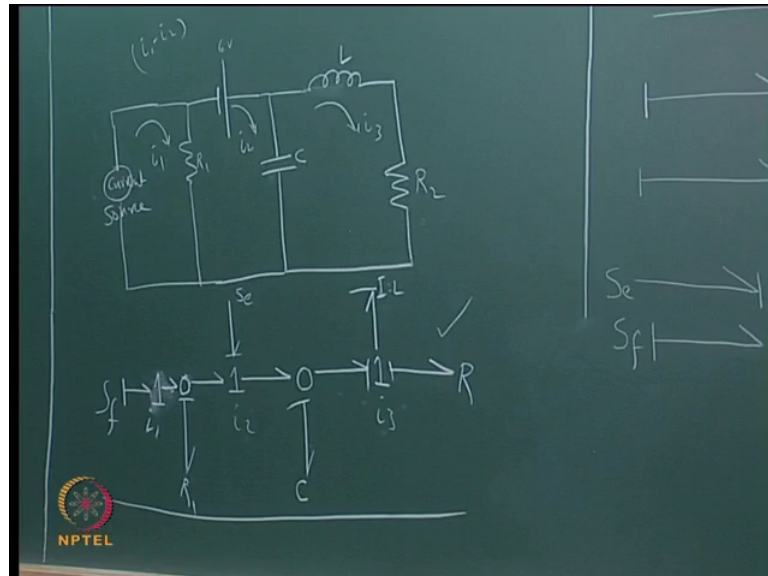 (i₁-i₂)
6V
L
i₁
R₁
i₂
C
i₃
R₂
Current
Source
Se
I:L
Se
Sf
Sf
1
0
1
0
1
R
i₁
i₂
i₃
R₁
C
NPTEL